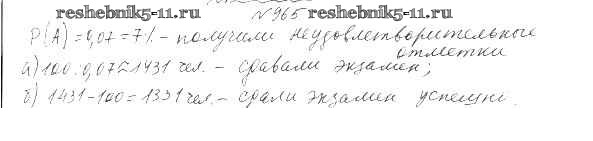 reshebnik5-11.ru №965 reshebnik5-11.ru
P(A)=0,07=7% – получили неудовлетворительные
отметки
а) 100:0,07≈1431 чел. – сдавали экзамен;
б) 1431-100=1331 чел. – сдали экзамен успешно.